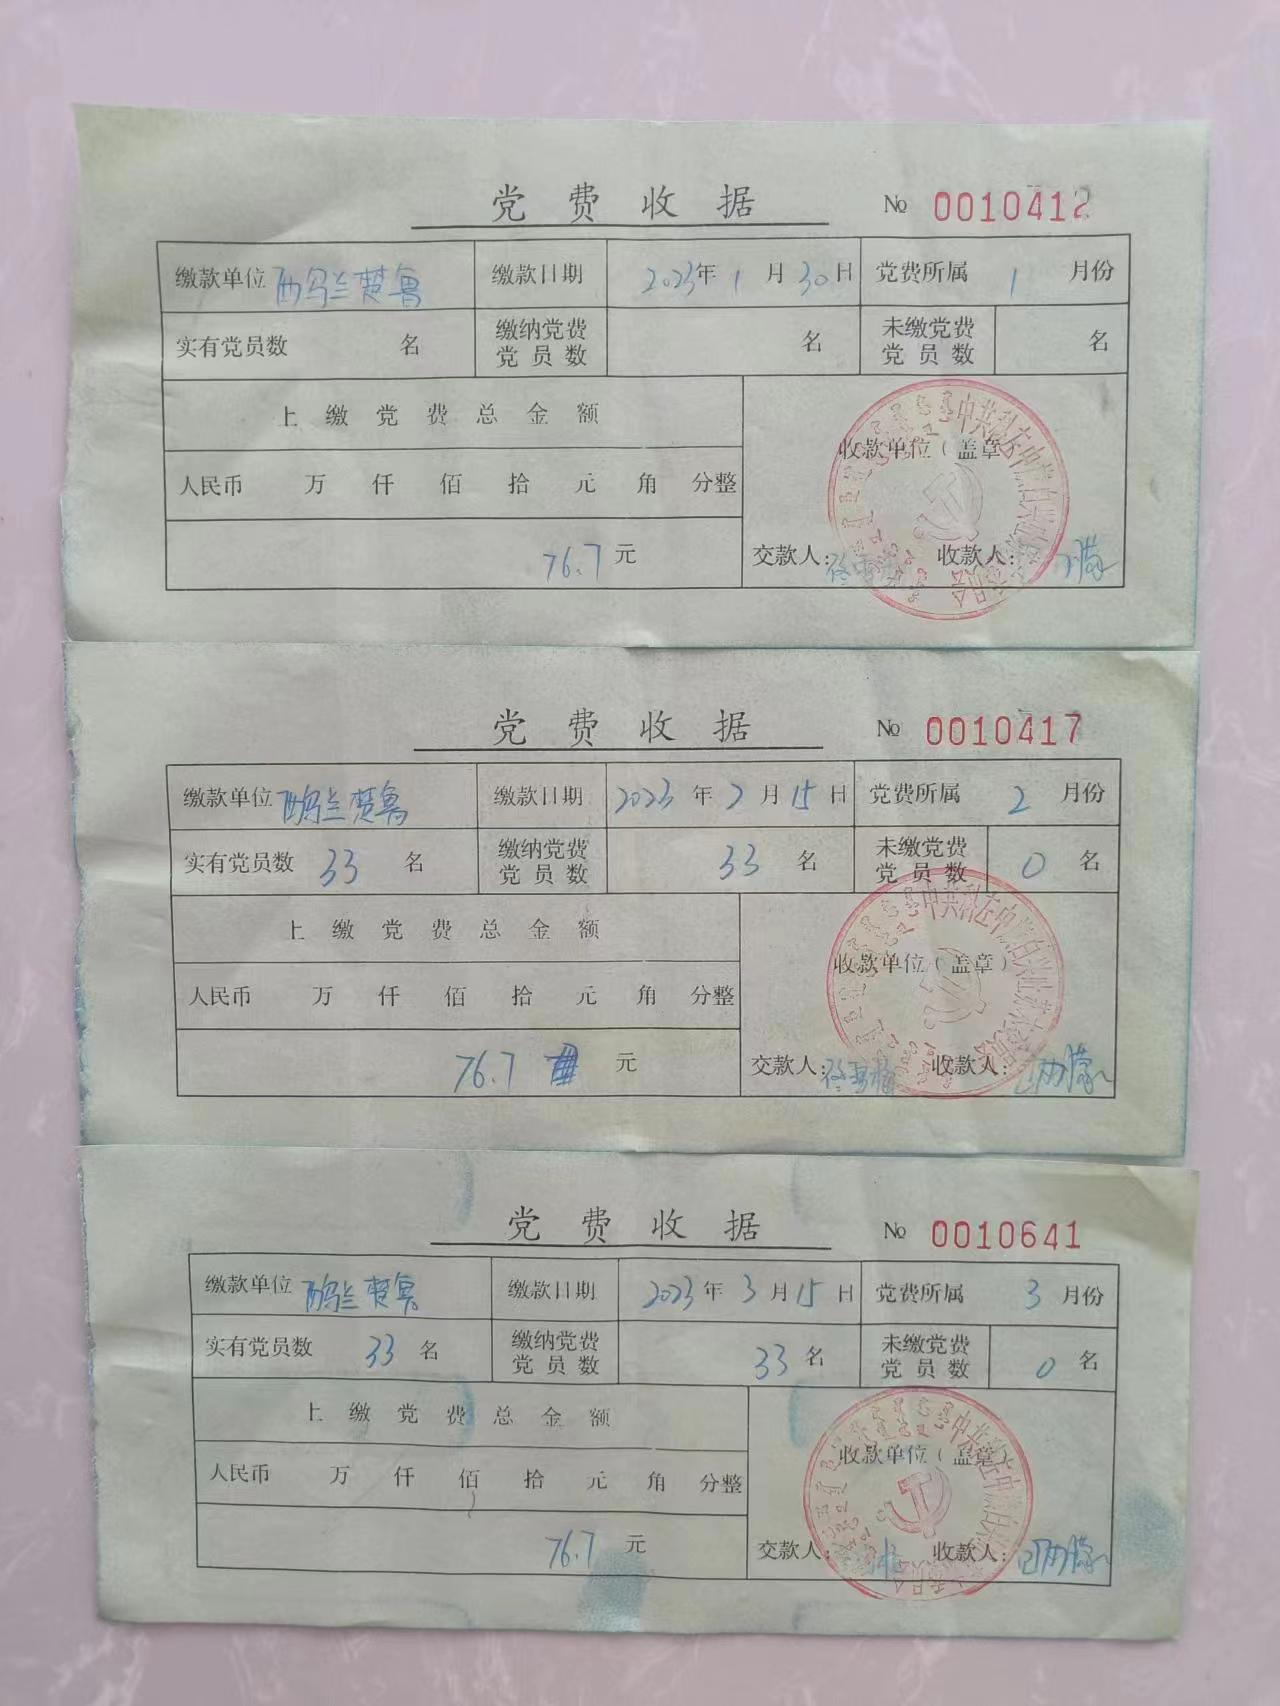 党费收据 № 0010412
缴款单位 西乌兰楚鲁 缴款日期 2023年1月30日 党费所属 1 月份
实有党员数 名 缴纳党费党员数 名 未缴党费党员数 名
上缴党费总金额
收款单位（盖章）
人民币 万 仟 佰 拾 元 角 分整
76.7元 交款人: 收款人:
党费收据 № 0010417
缴款单位 西乌兰楚鲁 缴款日期 2023年2月15日 党费所属 2 月份
实有党员数 33 名 缴纳党费党员数 33 名 未缴党费党员数 0 名
上缴党费总金额
收款单位（盖章）
人民币 万 仟 佰 拾 元 角 分整
76.7 元 交款人: 收款人:
党费收据 № 0010641
缴款单位 西乌兰楚鲁 缴款日期 2023年3月15日 党费所属 3 月份
实有党员数 33 名 缴纳党费党员数 33 名 未缴党费党员数 0 名
上缴党费总金额
收款单位（盖章）
人民币 万 仟 佰 拾 元 角 分整
76.7元 交款人: 收款人: